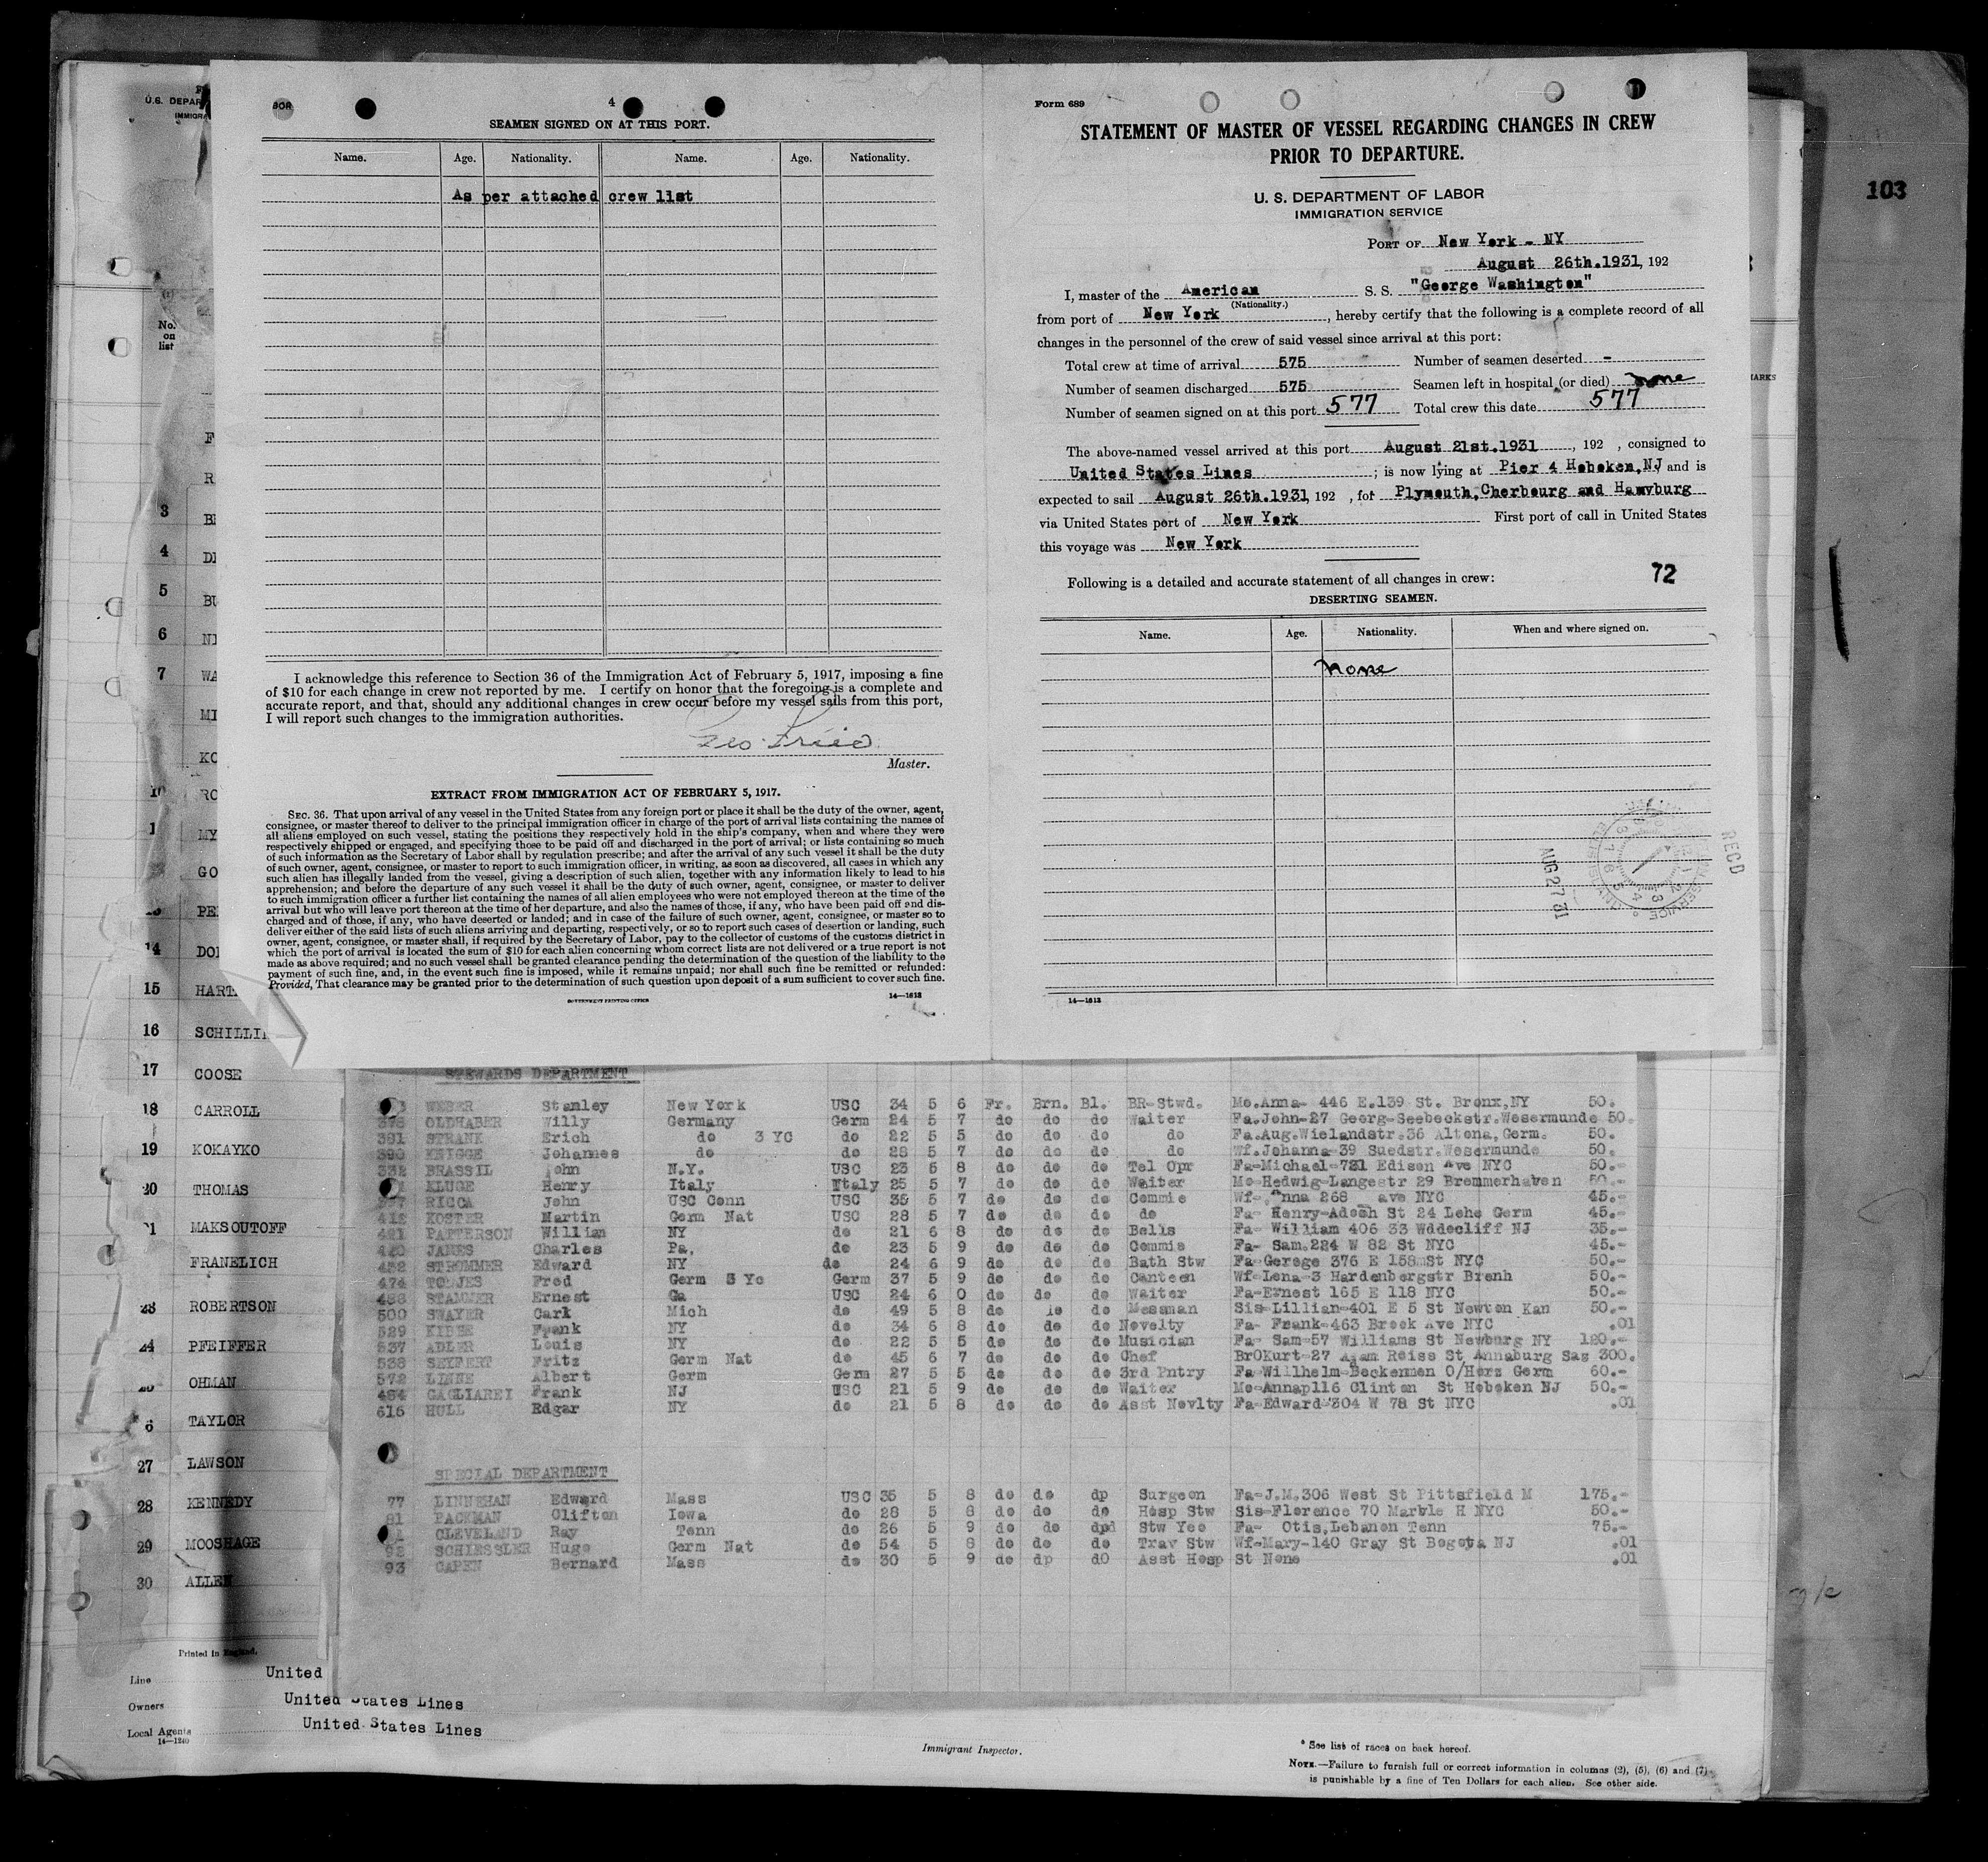 4
SEAMEN SIGNED ON AT THIS PORT.
Name. Age. Nationality. Name. Age. Nationality.
As per attached crew list
I acknowledge this reference to Section 36 of the Immigration Act of February 5, 1917, imposing a fine
of $10 for each change in crew not reported by me. I certify on honor that the foregoing is a complete and
accurate report, and that, should any additional changes in crew occur before my vessel sails from this port,
I will report such changes to the immigration authorities.
Geo Fried
Master.
EXTRACT FROM IMMIGRATION ACT OF FEBRUARY 5, 1917.
SEC. 36. That upon arrival of any vessel in the United States from any foreign port or place it shall be the duty of the owner, agent,
consignee, or master thereof to deliver to the principal immigration officer in charge of the port of arrival lists containing the names of
all aliens employed on such vessel, stating the positions they respectively hold in the ship's company, when and where they were
respectively shipped or engaged, and specifying those to be paid off and discharged in the port of arrival; or lists containing so much
of such information as the Secretary of Labor shall by regulation prescribe; and after the arrival of any such vessel it shall be the duty
of such owner, agent, consignee, or master to report to such immigration officer, in writing, as soon as discovered, all cases in which any
such alien has illegally landed from the vessel, giving a description of such alien, together with any information likely to lead to his
apprehension; and before the departure of any such vessel it shall be the duty of such owner, agent, consignee, or master to deliver
to such immigration officer a further list containing the names of all alien employees who were not employed thereon at the time of the
arrival but who will leave port thereon at the time of her departure, and also the names of those, if any, who have been paid off and dis-
charged and of those, if any, who have deserted or landed; and in case of the failure of such owner, agent, consignee, or master so to
deliver either of the said lists of such aliens arriving and departing, respectively, or so to report such cases of desertion or landing, such
owner, agent, consignee, or master shall, if required by the Secretary of Labor, pay to the collector of customs of the customs district in
which the port of arrival is located the sum of $10 for each alien concerning whom correct lists are not delivered or a true report is not
made as above required; and no such vessel shall be granted clearance pending the determination of the question of the liability to the
payment of such fine, and, in the event such fine is imposed, while it remains unpaid; nor shall such fine be remitted or refunded:
Provided, That clearance may be granted prior to the determination of such question upon deposit of a sum sufficient to cover such fine.
GOVERNMENT PRINTING OFFICE 14—1613
Form 689
STATEMENT OF MASTER OF VESSEL REGARDING CHANGES IN CREW
PRIOR TO DEPARTURE.
U. S. DEPARTMENT OF LABOR
IMMIGRATION SERVICE
PORT OF New York - NY
August 26th.1931, 192
I, master of the American S. S. "George Washington"
(Nationality.)
from port of New York, hereby certify that the following is a complete record of all
changes in the personnel of the crew of said vessel since arrival at this port:
Total crew at time of arrival 575 Number of seamen deserted -
Number of seamen discharged 575 Seamen left in hospital (or died) none
Number of seamen signed on at this port 577 Total crew this date 577
The above-named vessel arrived at this port August 21st.1931, 192 , consigned to
United States Lines; is now lying at Pier 4 Hoboken,NJ and is
expected to sail August 26th.1931, 192 , for Plymouth,Cherbourg and Hamvburg
via United States port of New York First port of call in United States
this voyage was New York
Following is a detailed and accurate statement of all changes in crew: 72
DESERTING SEAMEN.
Name. Age. Nationality. When and where signed on.
none
RECD
AUG 27 31
14—1613
103
U.S. DEPAR
IMMIGRA
No.
on
list
3 BE
4 DE
5 BU
6 NI
7 WA
MI
KO
10 RO
MY
GO
PE
14 DO
15 HART
16 SCHILLI
17 COOSE
18 CARROLL
19 KOKAYKO
20 THOMAS
21 MAKSOUTOFF
FRANELICH
23 ROBERTSON
24 PFEIFFER
OHMAN
6 TAYLOR
27 LAWSON
28 KENNEDY
29 MOOSHAGE
30 ALLEN
STEWARDS DEPARTMENT
WEBER Stanley New York USC 34 5 6 Fr. Brn. Bl. BR-Stwd. Mo.Anna- 446 E.139 St. Bronx,NY 50.
OLDHABER Willy Germany Germ 24 5 7 do do do Waiter Fa.John-27 Georg-Seebeckstr.Wesermunde 50.
381 STRANK Erich do 3 YC do 22 5 5 do do do do Fa.Aug.Wielandstr.36 Altona, Germ. 50.
390 KNIGGE Johannes do do 28 5 7 do do do do Wf.Johanna-39 Suedstr.Wesermunde 50.
332 BRASSIL John N.Y. USC 23 5 8 do do do Tel Opr Fa-Michael-721 Edison Ave NYC 50.-
KLUGE Henry Italy Italy 25 5 7 do do do Waiter Mo-Hedwig-Langestr 29 Bremmerhaven 50.-
RICCA John USC Conn USC 35 5 7 do do do Commie Wf-Anna 268 ave NYC 45.-
KOSTER Martin Germ Nat USC 28 5 7 do do do do Fa- Henry-Adoph St 24 Lehe Germ 45.-
421 PATTERSON William NY do 21 6 8 do do do Bells Fa- William 406 33 Wddecliff NJ 35.-
JAMES Charles Pa, do 23 5 9 do do do Commis Fa- Sam.224 W 82 St NYC 45.-
452 STROMMER Edward NY do 24 6 9 do do do Bath Stw Fa-Gerege 376 E 158mSt NYC 50.-
474 TODJES Fred Germ 3 Yc Germ 37 5 9 do do do Canteen Wf-Lena-3 Hardenbergstr Brenh 50.-
STAMMER Ernest Ga USC 24 6 0 do do do Waiter Fa-Ernest 165 E 118 NYC 50.-
500 SWAYER Carl Mich do 49 5 8 do do do Messman Sis-Lillian-401 E 5 St Newton Kan 50.-
529 Frank NY do 34 6 8 do do do Novelty Fa- Frank-463 Brook Ave NYC .01
537 ADLER Louis NY do 22 5 5 do do do Musician Fa- Sam-57 Williams St Newburg NY 120.-
538 SEYFERT Fritz Germ Nat do 45 6 7 do do do Chef BrOKurt-27 Agam Reiss St Annaburg Sas 300.
572 LINNE Albert Germ Germ 27 5 5 do do do 3rd Pntry Fa-Willhelm-Beckennen O/Herz Germ 60.-
484 GAGLIAREI Frank NJ USC 21 5 9 do do do Waiter Mo-Annap116 Clinton St Hoboken NJ 50.-
616 HULL Edgar NY do 21 5 8 do do do Asst Novlty Fa-Edward-304 W 78 St NYC .01
SPECIAL DEPARTMENT
77 LINNEHAN Edward Mass USC 35 5 8 do do dp Surgeon Fa-J.M.306 West St Pittsfield M 175.-
81 PACKMAN Clifton Iowa do 28 5 8 do do do Hosp Stw Sis-Florence 70 Marble H NYC 50.-
CLEVELAND Ray Tenn do 26 5 9 do do dpd Stw Yeo Fa- Otis,Lebanon Tenn 75.-
92 SCHIESSLER Hugo Germ Nat do 54 5 8 do do do Trav Stw Wf-Mary-140 Gray St Bogota NJ .01
93 CAPEN Bernard Mass do 30 5 9 do dp dO Asst Hosp St None .01
Printed in England.
Line United
Owners United States Lines
Local Agents United States Lines
14—1240
Immigrant Inspector.
* See list of races on back hereof.
NOTE.—Failure to furnish full or correct information in columns (2), (5), (6) and (7)
is punishable by a fine of Ten Dollars for each alien. See other side.